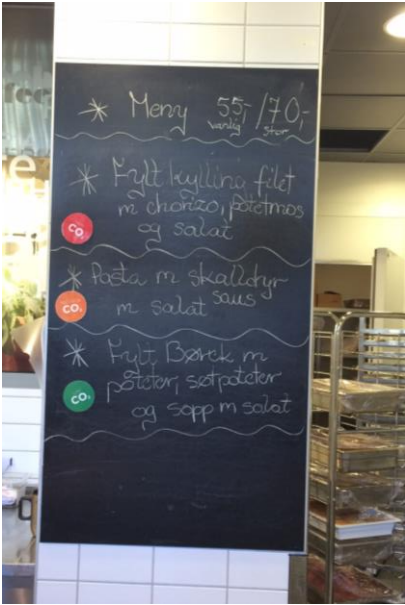 Meny 55,- / 70,-
vanlig stor
Fylt kylling filet
m chorizo, potetmos
og salat
CO₂
Pasta m skalldyr
saus
m salat
CO₂
Fylt Børek m
poteter, søtpoteter
og sopp m salat
CO₂